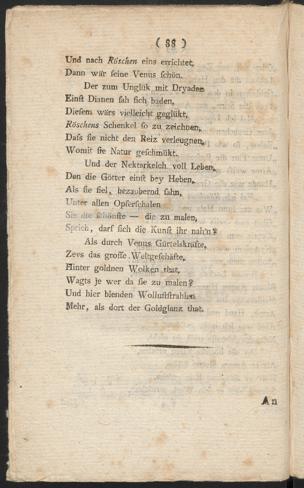 ( 88 )
Und nach Röschen eins errichtet,
Dann wär seine Venus schön.
Der zum Unglük mit Dryaden
Einst Dianen sah sich baden,
Diesem wärs vielleicht geglükt,
Röschens Schenkel so zu zeichnen,
Dass sie nicht den Reiz verleugnen,
Womit sie Natur geschmükt.
Und der Nektarkelch voll Leben,
Den die Götter einst bey Heben,
Als sie fiel, bezaubernd sahn,
Unter allen Opferschalen
Sie die schönste — die zu malen,
Sprich, darf sich die Kunst ihr nah'n?
Als durch Venus Gürtelskräfte,
Zevs das grosse Weltgeschäfte,
Hinter goldnen Wolken that,
Wagts je wer da sie zu malen?
Und hier blenden Wolluststrahlen
Mehr, als dort der Goldglanz that.
An